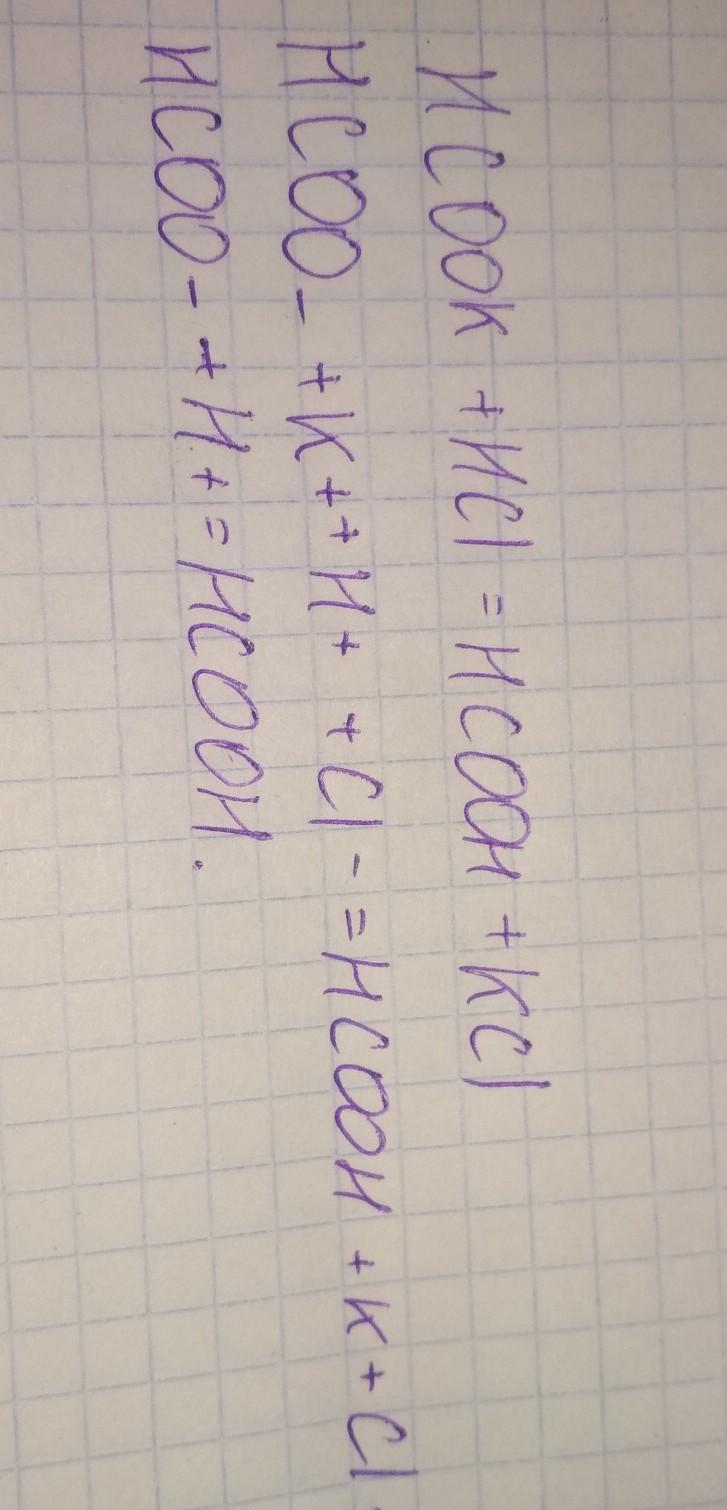 HCOOK + HCl = HCOOH + KCl
HCOO- + K+ + H+ + Cl- = HCOOH + K + Cl
HCOO- + H+ = HCOOH.